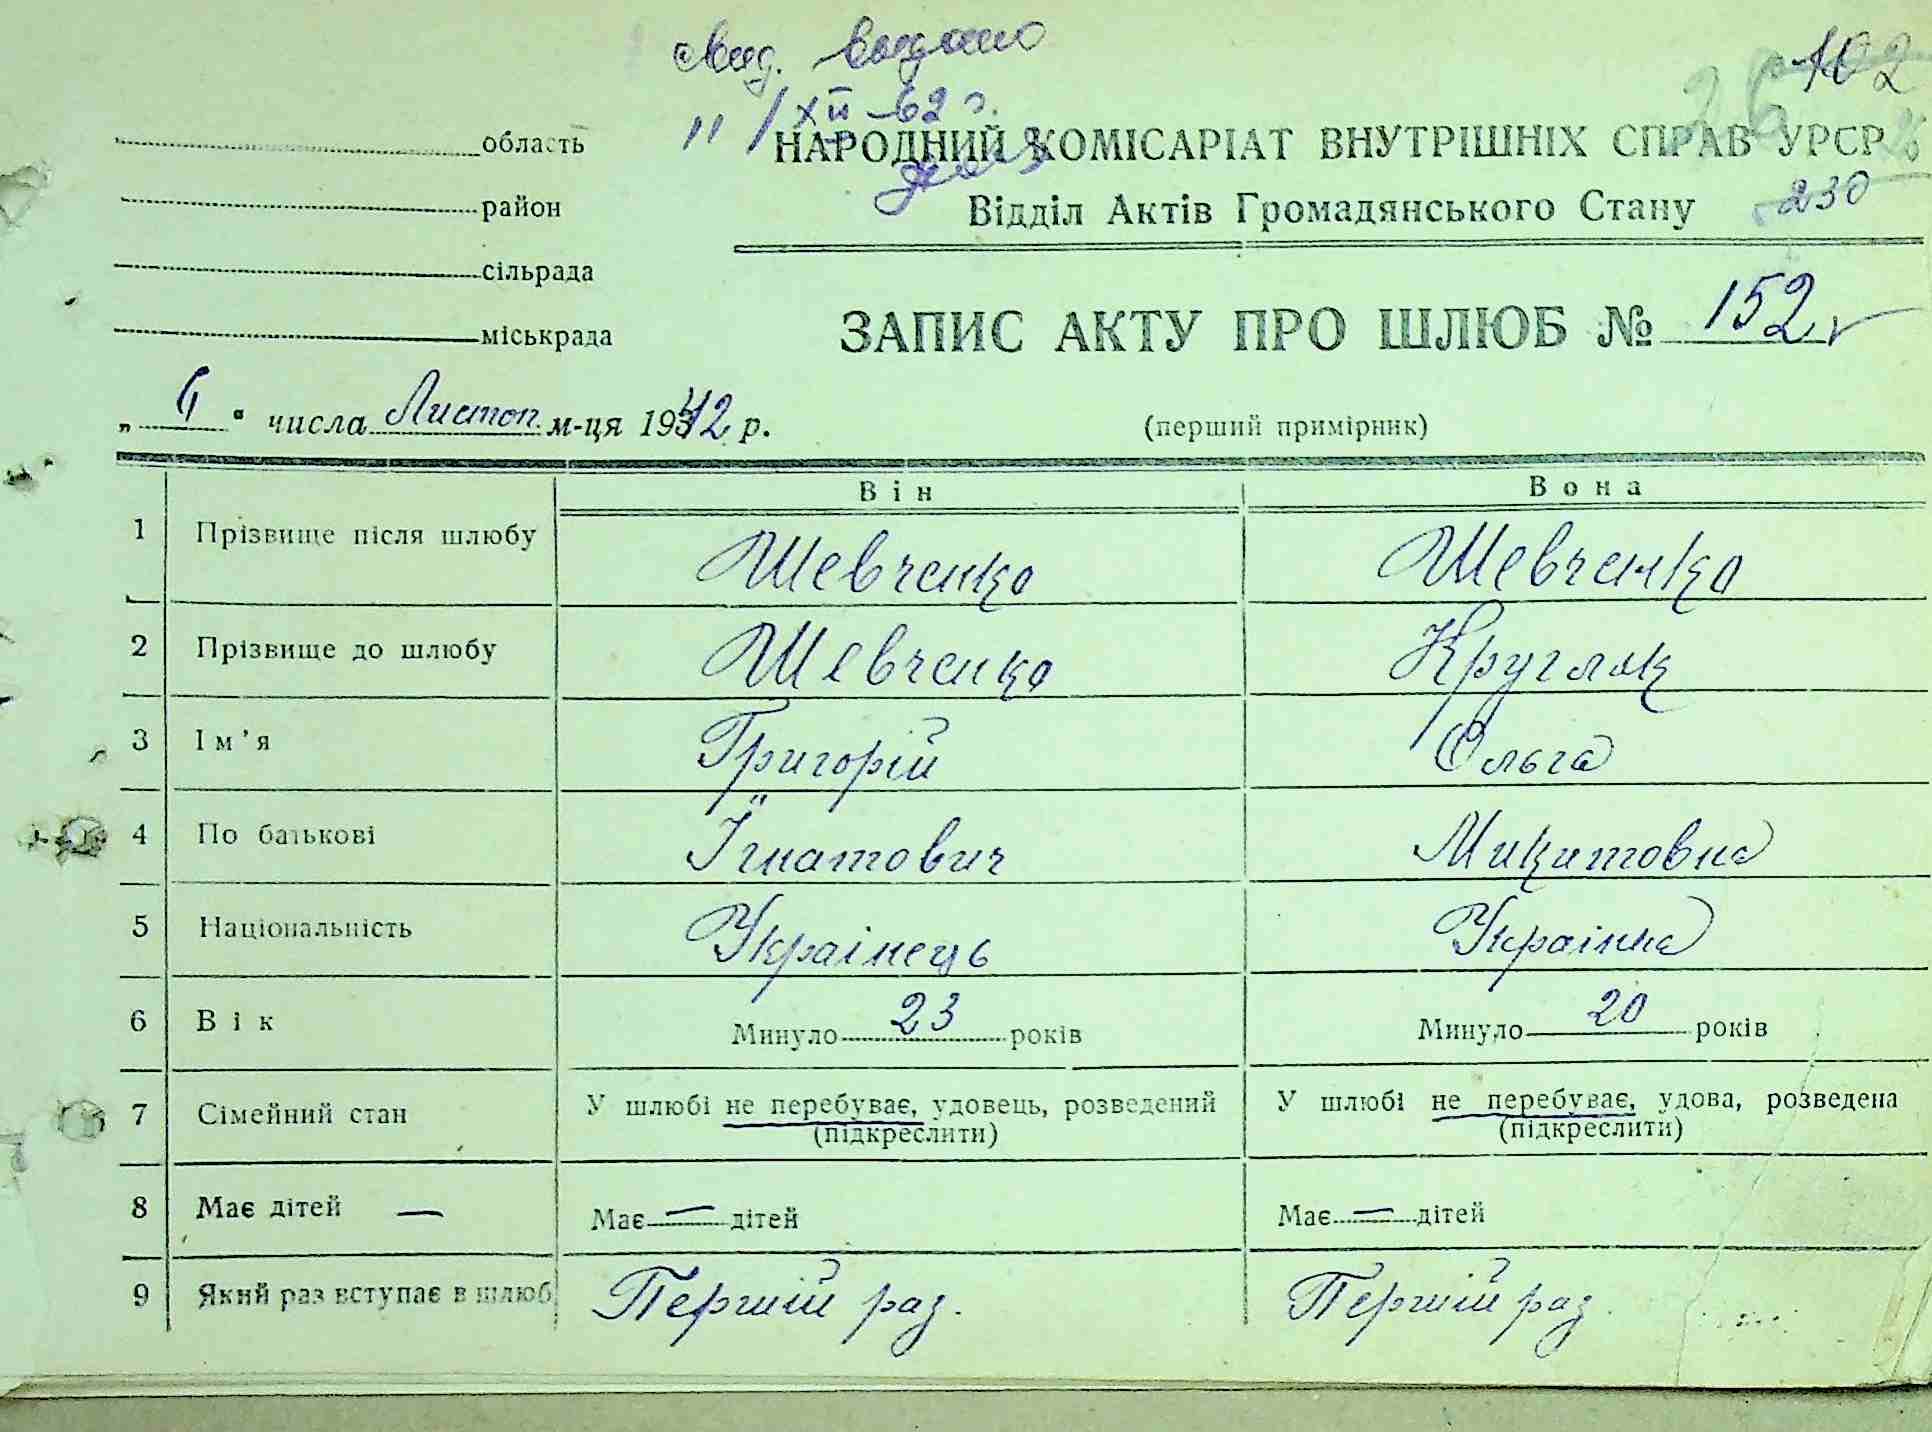 выдано
102
11/XII-62 г.
область
НАРОДНИЙ КОМІСАРІАТ ВНУТРІШНІХ СПРАВ УРСР
26
район
Відділ Актів Громадянського Стану
230
сільрада
міськрада
ЗАПИС АКТУ ПРО ШЛЮБ № 152
„ “ числа Листоп. м-ця 1942 р.
(перший примірник)
Він Вона
1 Прізвище після шлюбу Шевченко Шевченко
2 Прізвище до шлюбу Шевченко Кругляк
3 Ім’я Григорій Ольга
4 По батькові Ігнатович Микитовна
5 Національність Украінець Украінка
6 Вік Минуло 23 років Минуло 20 років
7 Сімейний стан У шлюбі не перебуває, удовець, розведений У шлюбі не перебуває, удова, розведена
(підкреслити) (підкреслити)
8 Має дітей — Має — дітей Має — дітей
9 Який раз вступає в шлюб Перший раз. Перший раз.